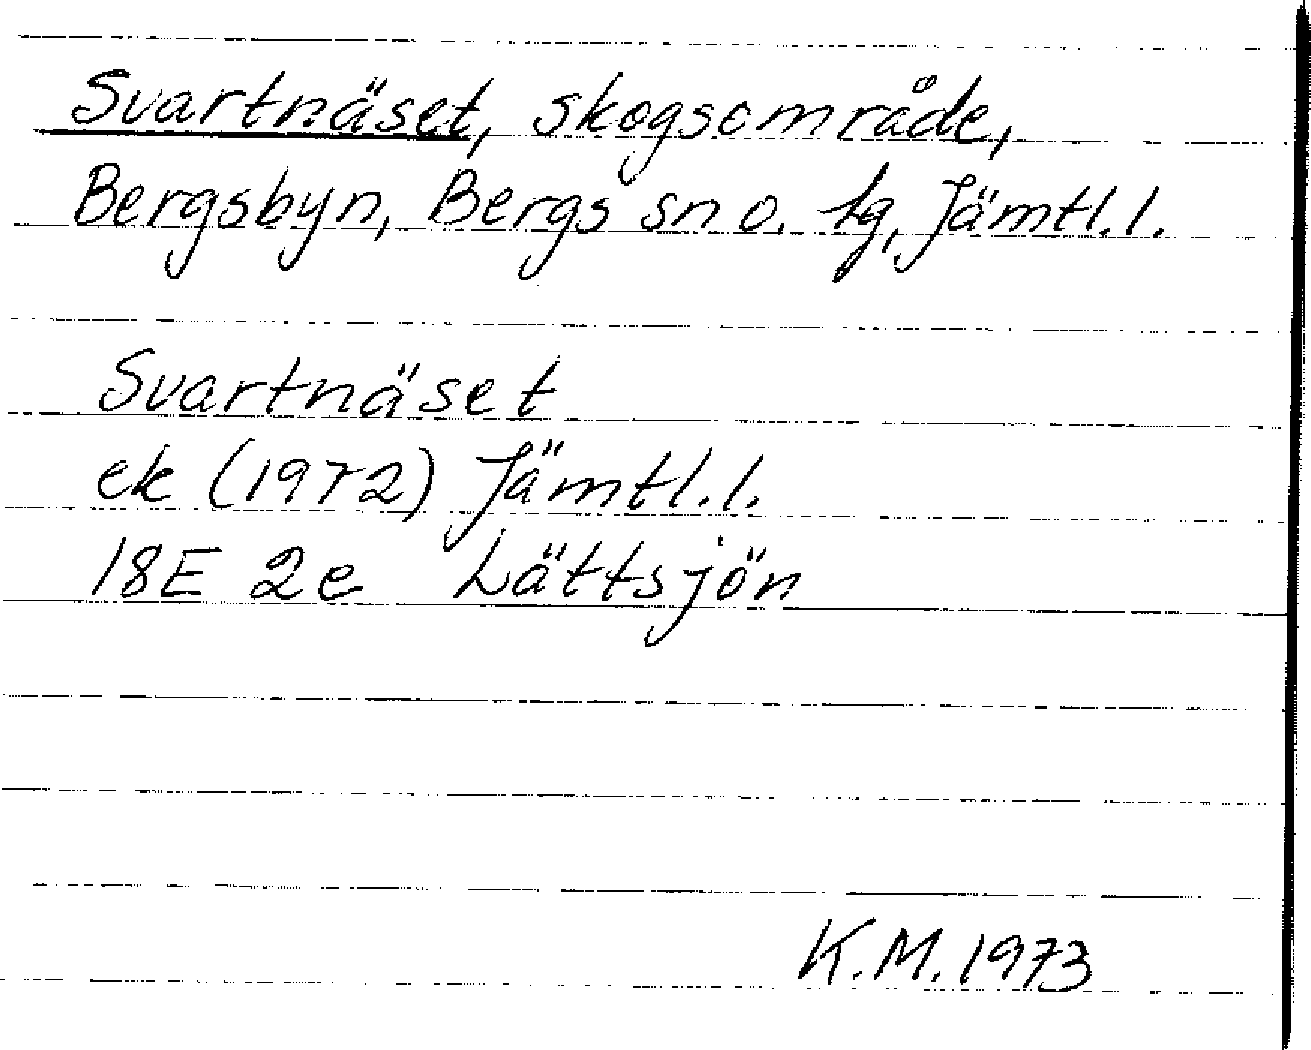 Svartnäset, skogsområde,
Bergsbyn, Bergs sn o. tg, Jämtl. l.
Svartnäset
ek (1972) Jämtl. l.
18E 2e Lättsjön
K.M. 1973